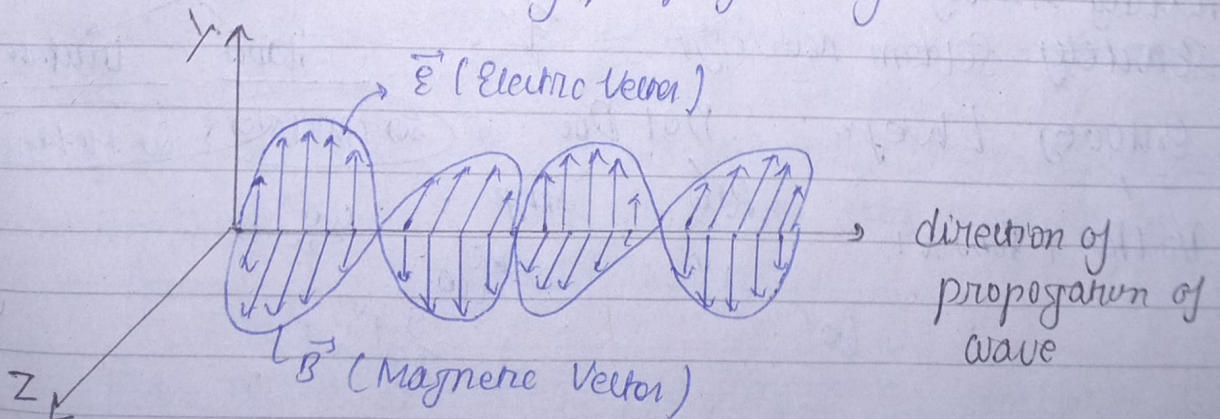 Y
ε⃗ (Electric Vector)
direction of
propogation of
wave
B⃗ (Magnetic Vector)
Z